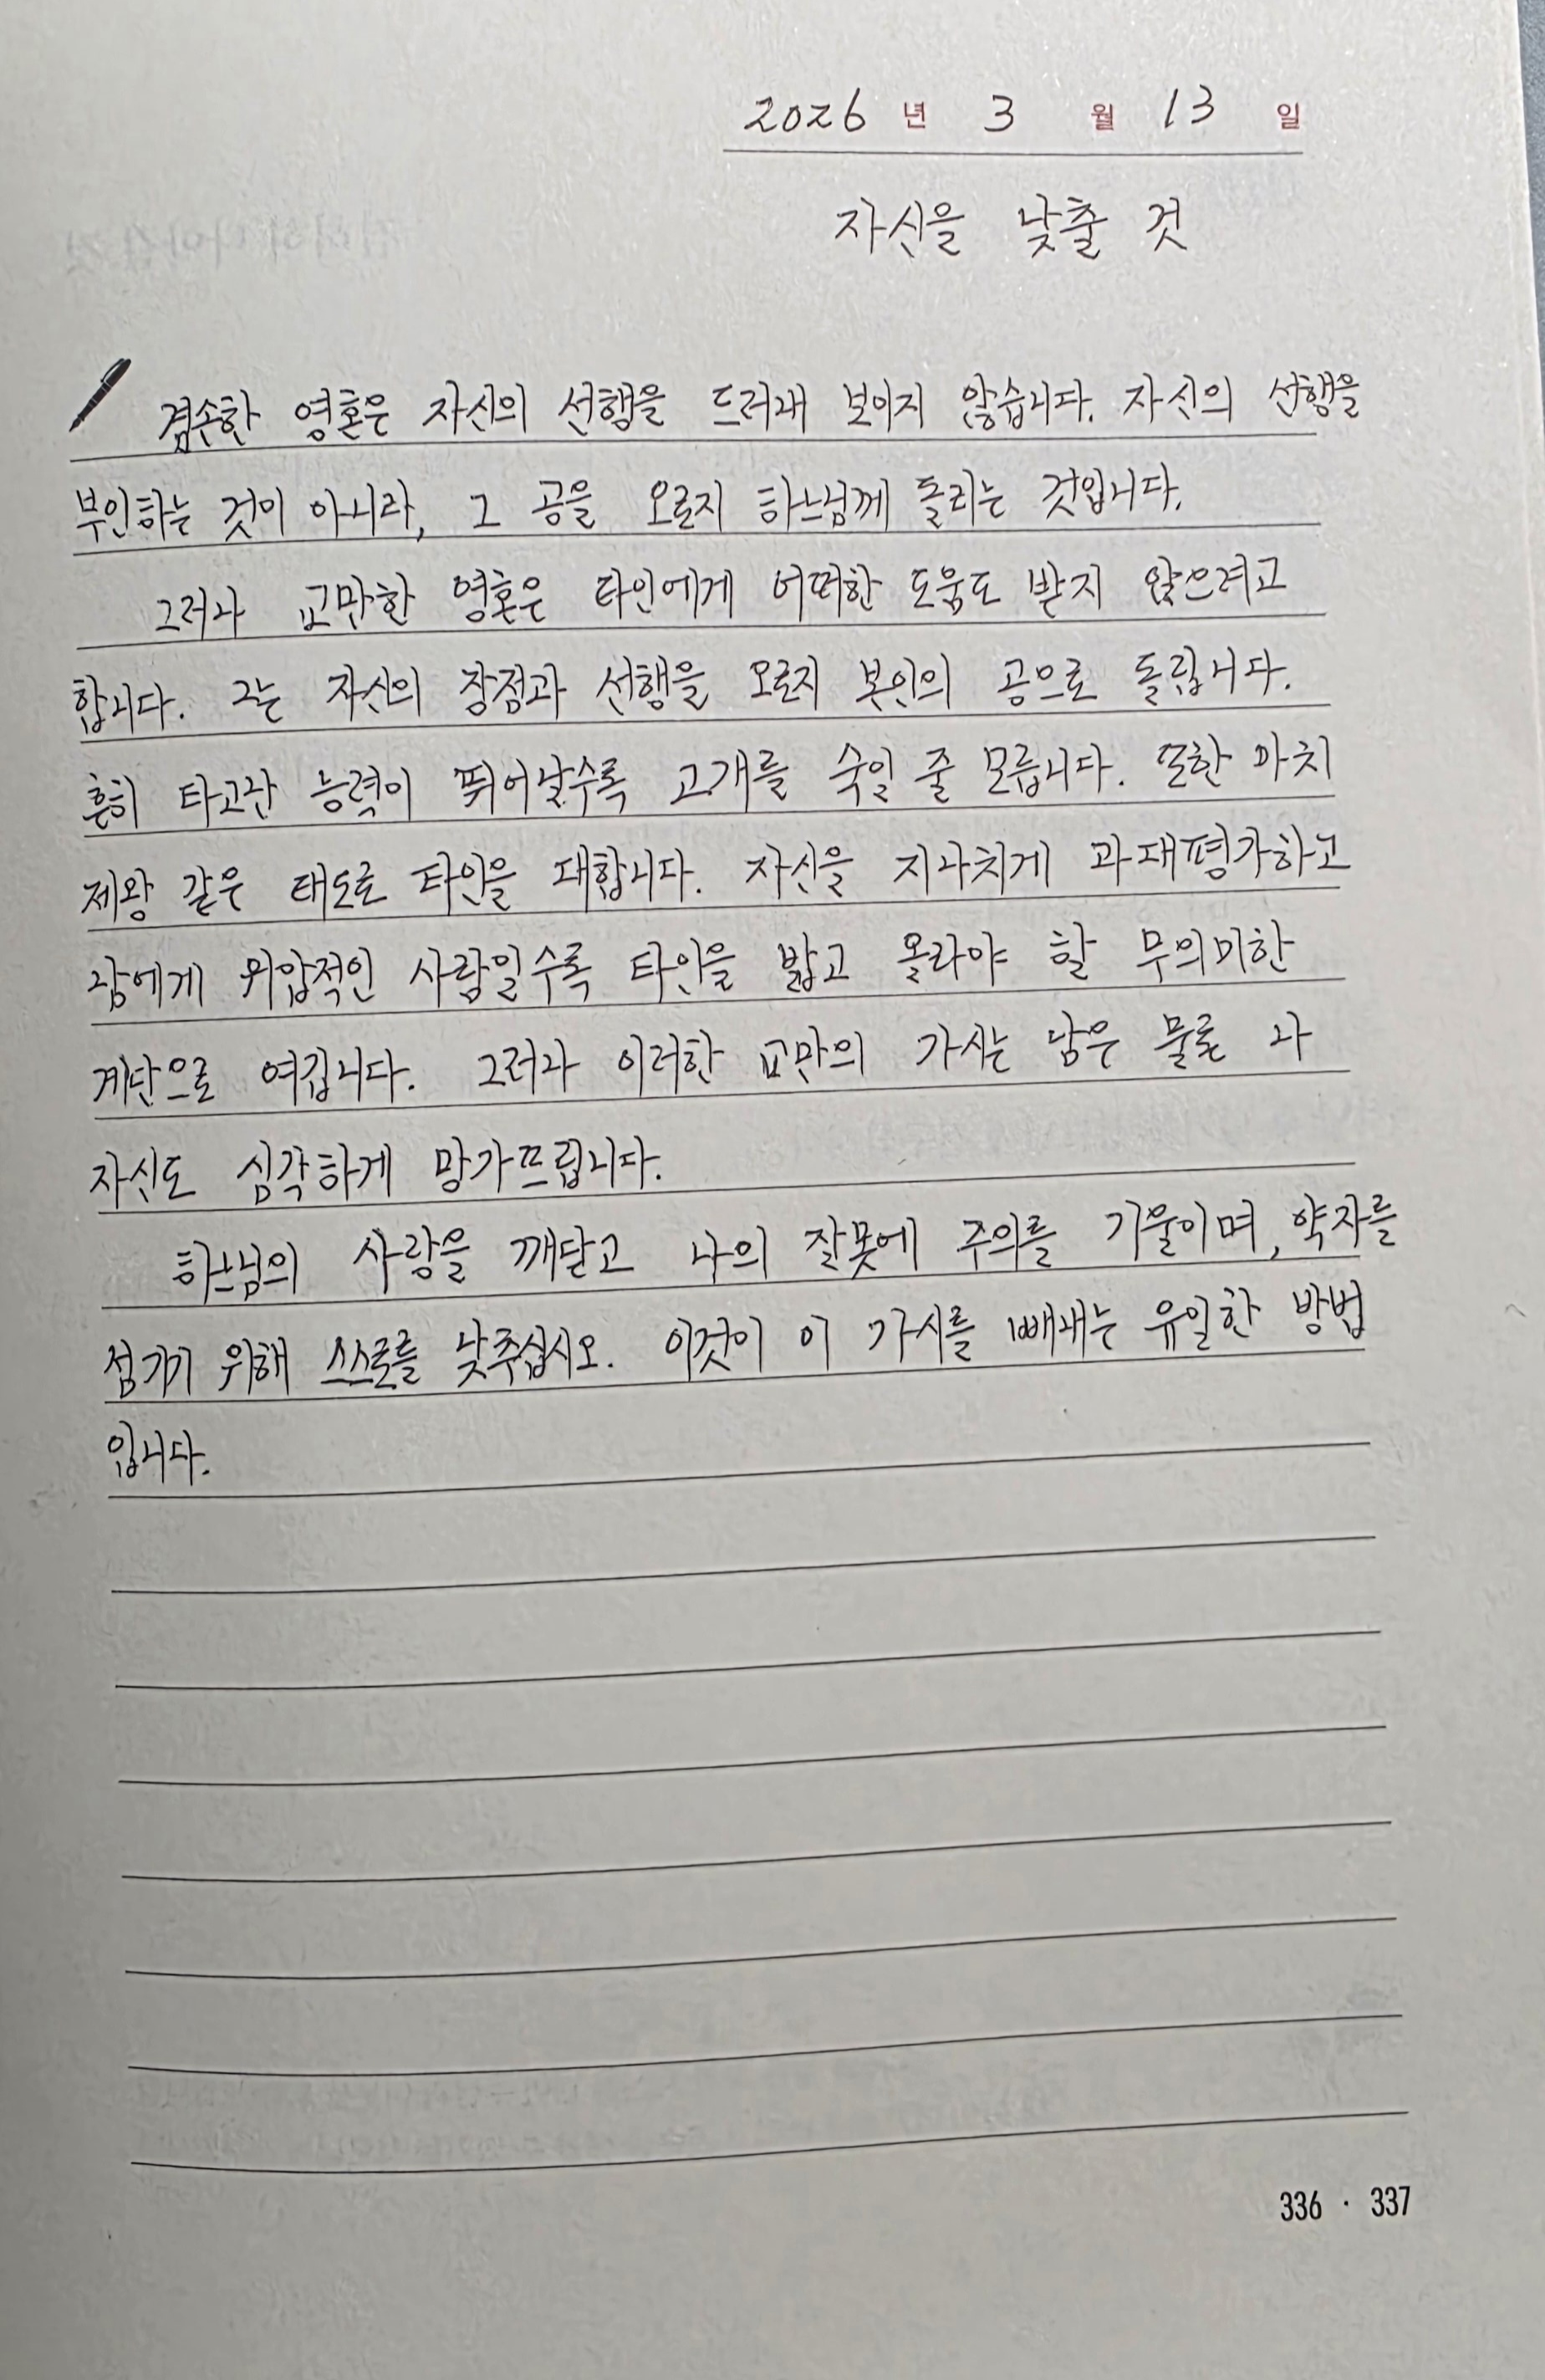 2026 년 3 월 13 일
자신을 낮출 것
겸손한 영혼은 자신의 선행을 드러내 보이지 않습니다. 자신의 선행을
부인하는 것이 아니라, 그 공을 오로지 하느님께 돌리는 것입니다.
그러나 교만한 영혼은 타인에게 어떠한 도움도 받지 않으려고
합니다. 그는 자신의 장점과 선행을 오로지 본인의 공으로 돌립니다.
흔히 타고난 능력이 뛰어날수록 고개를 숙일 줄 모릅니다. 또한 마치
제왕 같은 태도로 타인을 대합니다. 자신을 지나치게 과대평가하고
남에게 위압적인 사람일수록 타인을 밟고 올라야 할 무의미한
계단으로 여깁니다. 그러나 이러한 교만의 가시는 남은 물론 나
자신도 심각하게 망가뜨립니다.
하느님의 사랑을 깨닫고 나의 잘못에 주의를 기울이며, 약자를
섬기기 위해 스스로를 낮추십시오. 이것이 이 가시를 빼내는 유일한 방법
입니다.
336 · 337